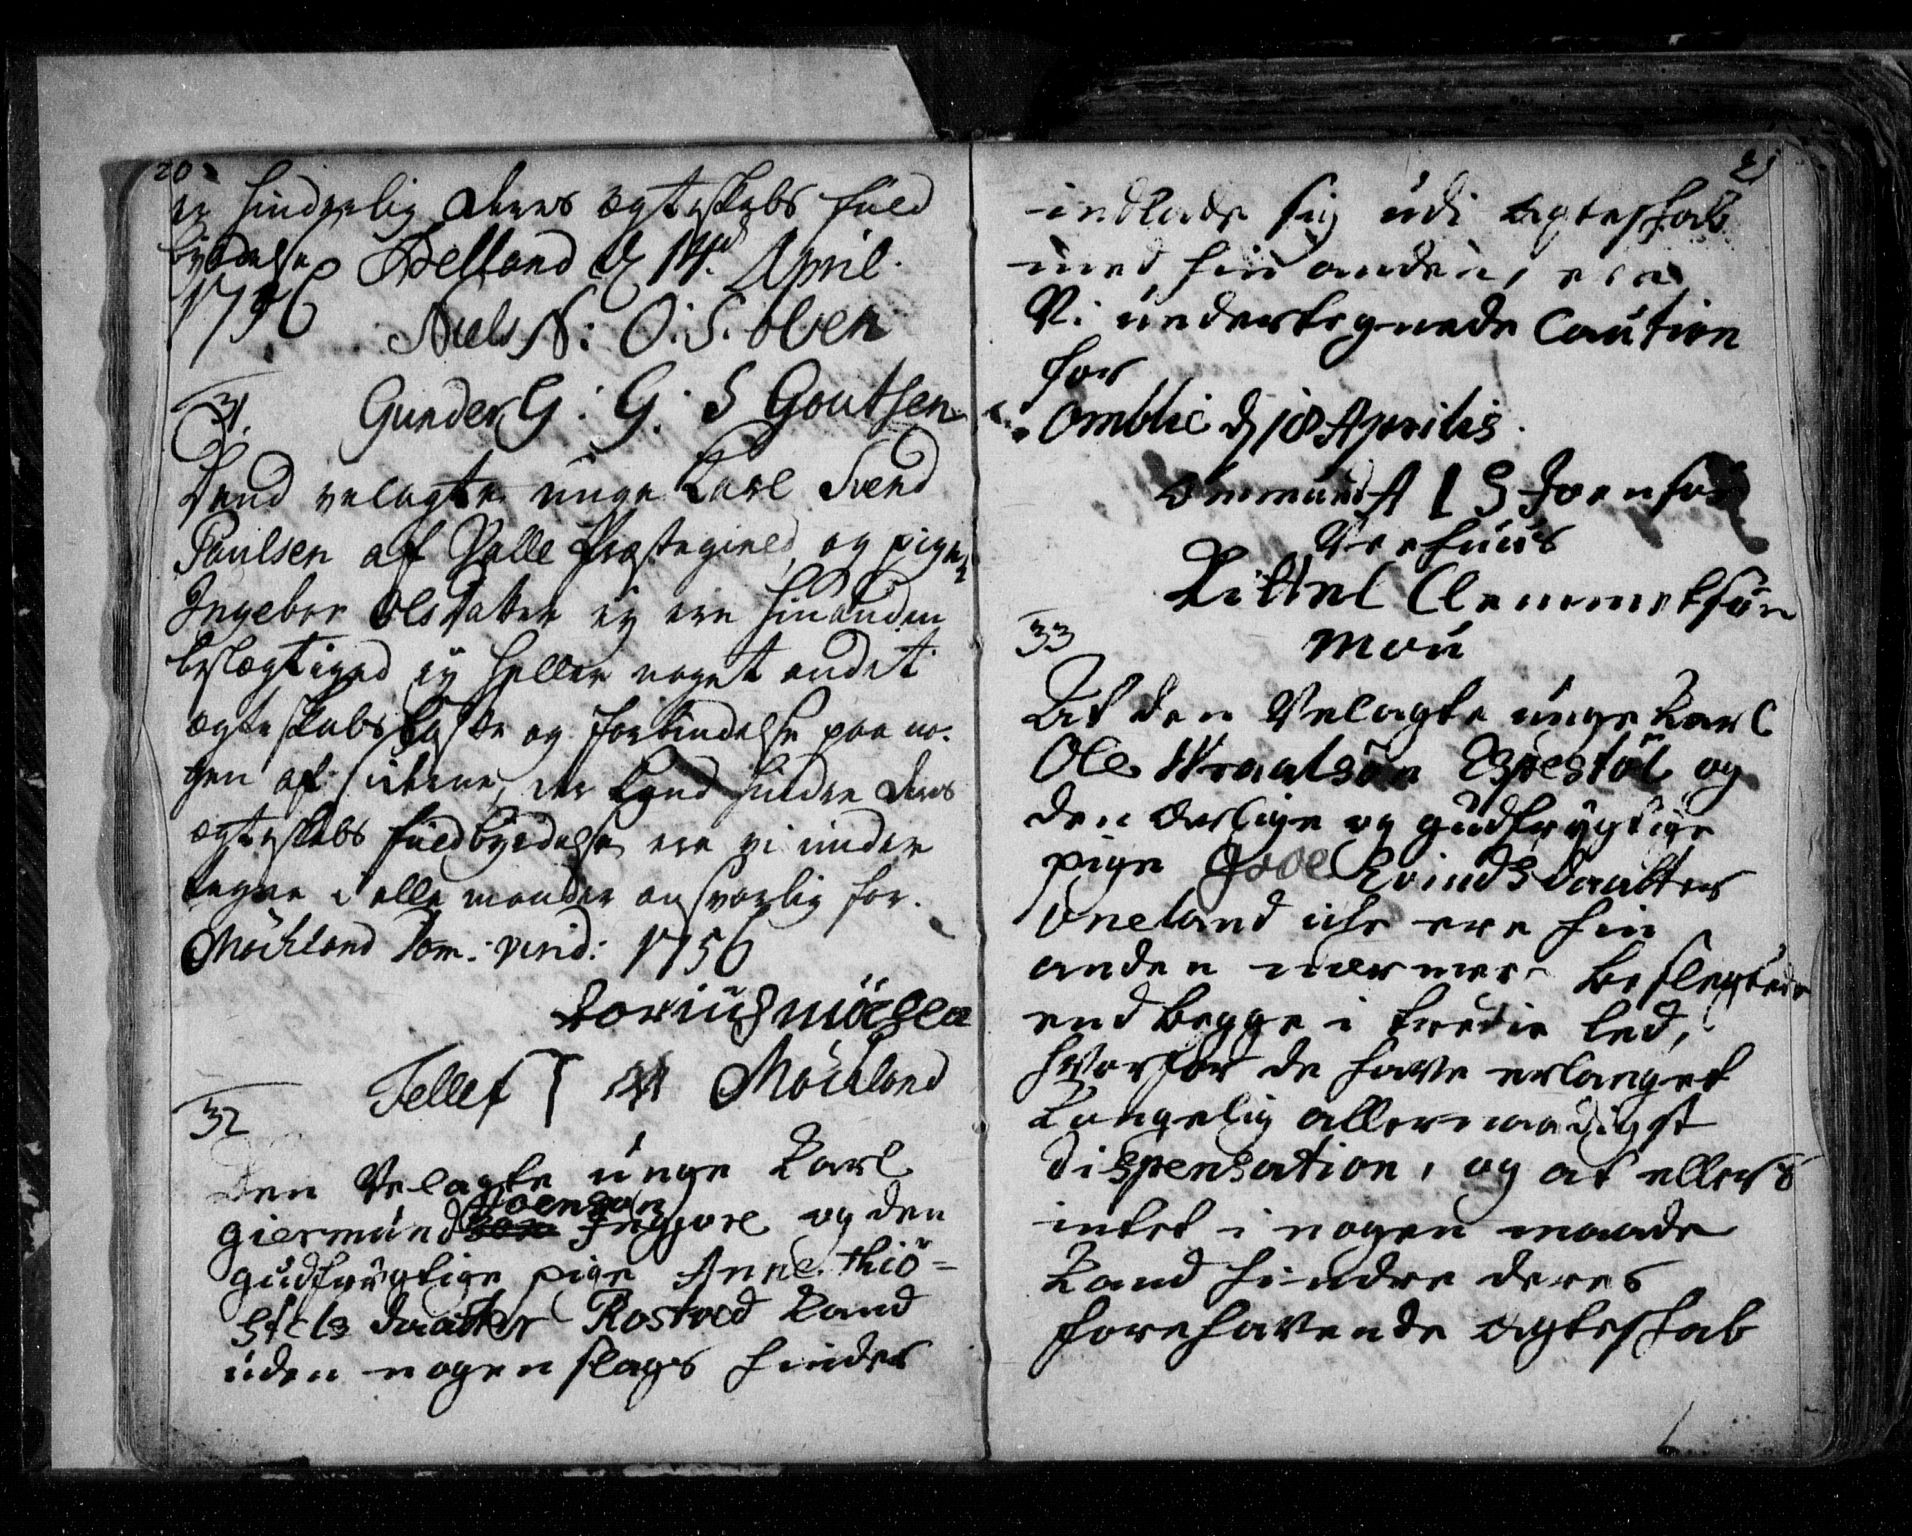 20
er hinderlig deres ægteskabs fuld
byrdelse Helland d 14de April.
1756
Niels N: O: S. Olsen
31.
Gunder G: G: S Goutsen
Dend velagte unge Karl Svend
Paulsen af Valle Præstegield og pigen
Ingebor Olsdatter ey ere hinanden
beslægtiged ey heller noget andet
ægteskabs løfte og forbindelse paa no-
gen af siderne, der kand hindre deres
ægteskabs fuldbyrdelse ere vi under
tegnede i alle maader answarlig for.
Möchland Dom: 1756
Tellef T Möchland
32
Den Velagte unge Karl
Giermund Joensøn og den
gudfrygtige pige Anne Thiö-
stels daatter Rostved kand
uden nogen slags hinder
21
indlade sig udi ægteskab
med hin anden, ere
Vi undertegnede Caution
for
Omblie d 18 Aprilis.
Ommund A L S Joensøn
Veehuus
Kittel Clemmetsøn
Mou
33
At den Velagte unge Karl
Ole Wraalsøn Espestöl og
den ærlige og gudfrygtige
pige Evindsdaatter
Uneland icke ere hin
anden nærmere beslegtede
end begge i tredie led,
hvorfor de have erlanget
Kongelig allernaadigst
dispensation, og at ellers
intet i nogen maade
kand hindre deres
forehavende ægteskab